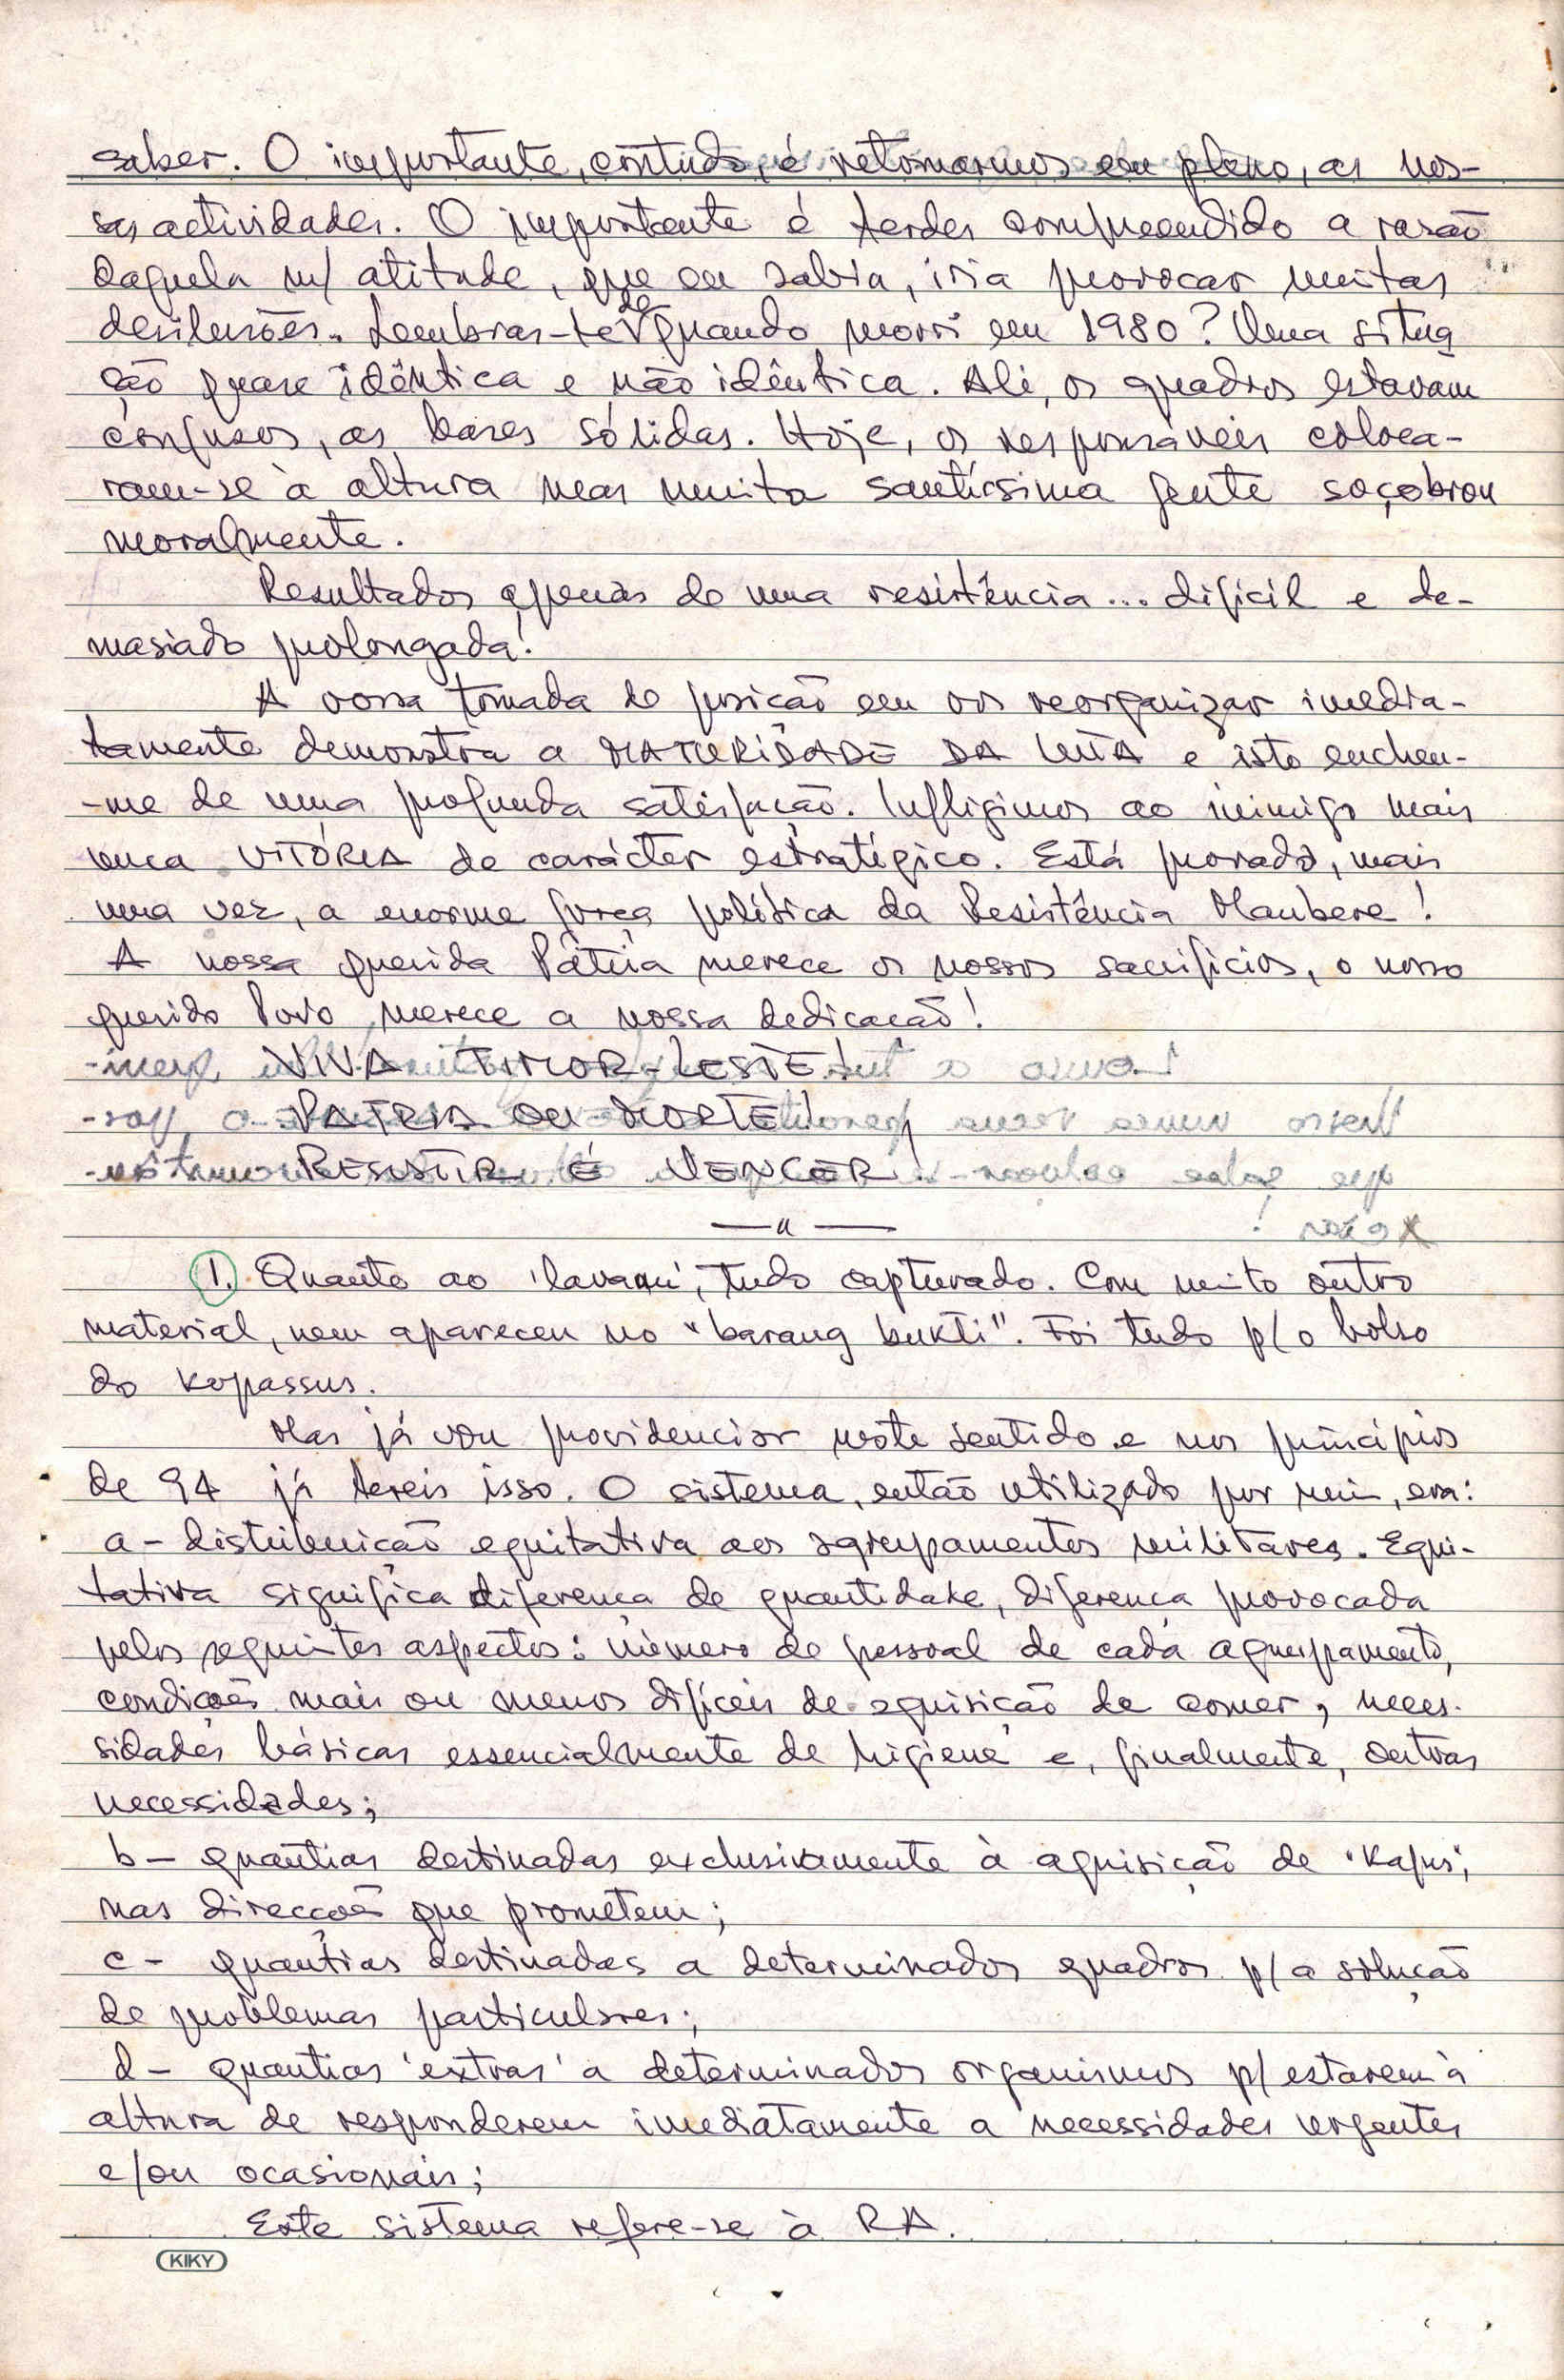 saber. O importante, contudo, é retomarmos em pleno, as nos-
sas actividades. O importante é terdes compreendido a razão
daquela m/ atitude, que eu sabia, iria provocar muitas
desilusões. Lembras-te de quando morri em 1980? Uma situa
ção quase idêntica e não idêntica. Ali, os quadros estavam
confusos, as bases sólidas. Hoje, os responsáveis coloca-
ram-se à altura mas muita santíssima gente soçobrou
moralmente.
Resultados apenas de uma resistência... difícil e de-
masiado prolongada!
A vossa tomada de posição em vos reorganizar imedia-
tamente demonstra a MATURIDADE DA LUTA e isto encheu-
-me de uma profunda satisfação. Infligimos ao inimigo mais
uma VITÓRIA de carácter estratégico. Está provado, mais
uma vez, a enorme força política da Resistência Maubere!
A nossa querida Pátria merece os nossos sacrifícios, o nosso
querido Povo merece a nossa dedicação!
VIVA TIMOR-LESTE!
PATRIA OU MORTE!
RESISTIR É VENCER!
—"—
1. Quanto ao 'lavani', tudo capturado. Com muito outro
material, nem apareceu no "barang bukti". Foi tudo p/o bolso
do kopassus.
Mas já vou providenciar neste sentido e nos princípios
de 94 já tereis isso. O sistema, então utilizado por mim, era:
a - distribuição equitativa aos agrupamentos militares. Equi-
tativa significa diferença de quantidade, diferença provocada
pelos seguintes aspectos: número de pessoal de cada agrupamento,
condições mais ou menos difíceis de aquisição de comer, neces-
sidades básicas essencialmente de higiene e, finalmente, outras
necessidades;
b - quantias destinadas exclusivamente à aquisição de 'kapus',
nas direcções que prometem;
c - quantias destinadas a determinados quadros p/a solução
de problemas particulares;
d - quantias 'extras' a determinados organismos p/estarem à
altura de responderem imediatamente a necessidades urgentes
e/ou ocasionais;
Este sistema refere-se à RA.
KIKY